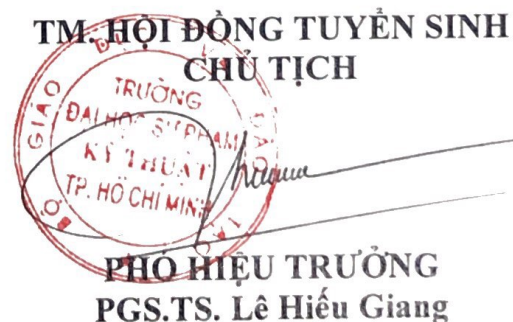 TM. HỘI ĐỒNG TUYỂN SINH
CHỦ TỊCH
BỘ GIÁO DỤC VÀ ĐÀO TẠO
TRƯỜNG
ĐẠI HỌC SƯ PHẠM
KỸ THUẬT
TP. HỒ CHÍ MINH
PHÓ HIỆU TRƯỞNG
PGS.TS. Lê Hiếu Giang